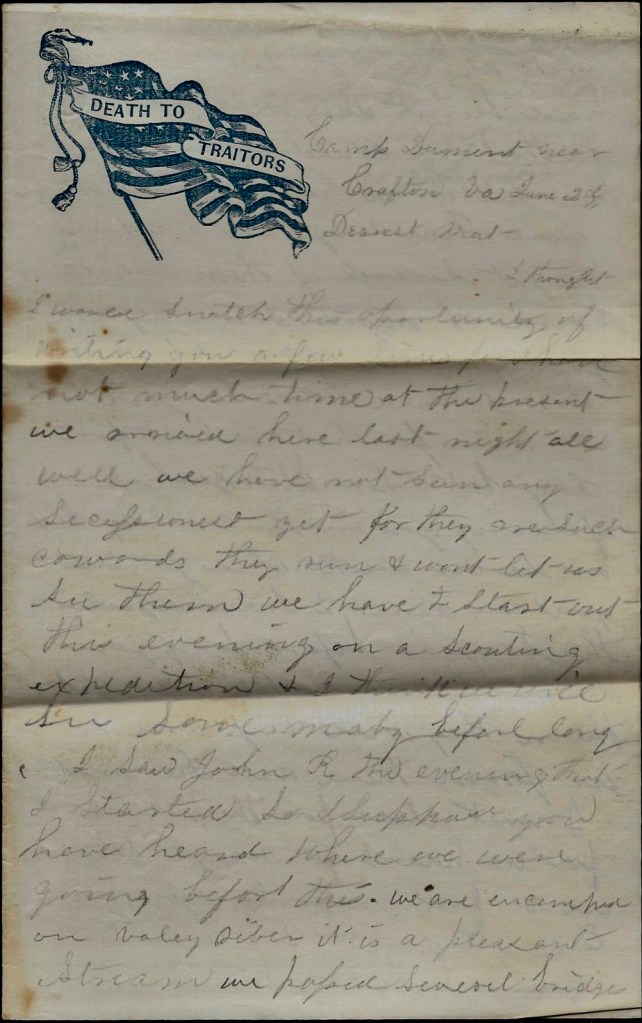 DEATH TO
TRAITORS
Camp Dument near
Grafton Va June 29
Dearest Mat
I thought
I would snatch this oportunity of
writing you a few lines for I have
not much time at the present
we arrived here last night all
well we have not seen any
Secessionest yet for they are such
cowards they run & wont let us
see them we have to start out
this evening on a Scouting
expedition & I think we will
See Some maby before long
I Saw John R the evening that
I Started So I Suppose you
have heard where we were
going before this. we are encamped
on valey it is a pleasant
Stream we passed several bridges